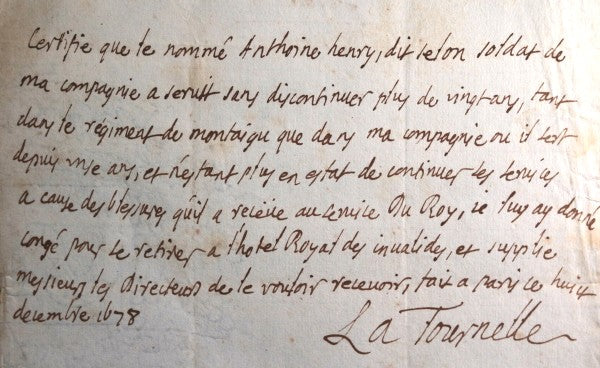 Certifie que le nommé Anthoine henry, dit leton soldat de
ma compagnie a seruit sans discontinuer plus de vingt ans, tant
dans le régiment de montaigu que dans ma compagnie ou il sert
depuis unse ans, et n'estant plus en estat de continuer ses seruices
a cause des blessures qu'il a recëue au seruice Du Roy, Je luy ay donné
congé pour se retirer a l'hotel Royal des inualides, et supplie
messieurs les Directeurs de le vouloir receuoir, fait a paris ce huit
decembre 1678
La Tournelle